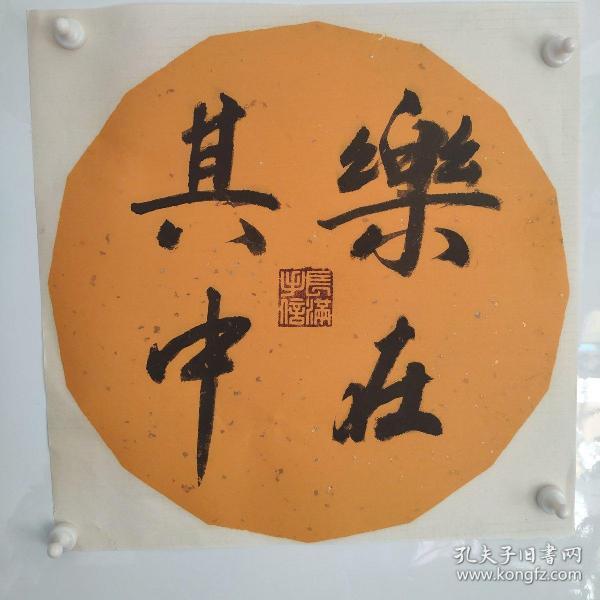 樂在
其中
孔夫子旧書网
www.kongfz.com